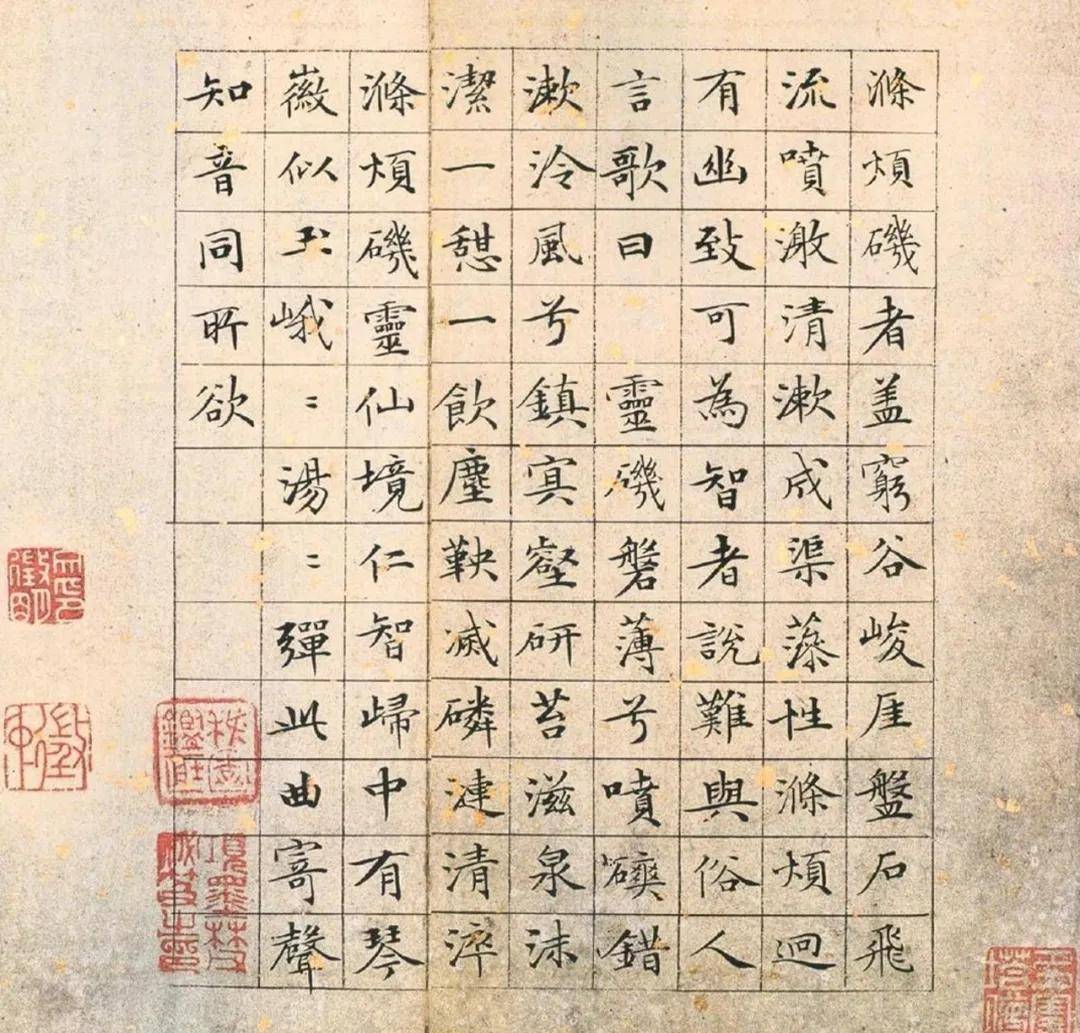 滌煩磯者盖窮谷峻厓盤石飛
流噴激清漱成渠藻性滌煩迥
有幽致可為智者說難與俗人
言歌曰 靈磯磐薄兮噴磢錯
漱泠風兮鎮冥壑研苔滋泉沫
潔一憇一飲塵鞅滅磷漣清淬
滌煩磯靈仙境仁智歸中有琴
徽以玉峨〻湯〻彈此曲寄聲
知音同所欲
項墨林祕笈之印